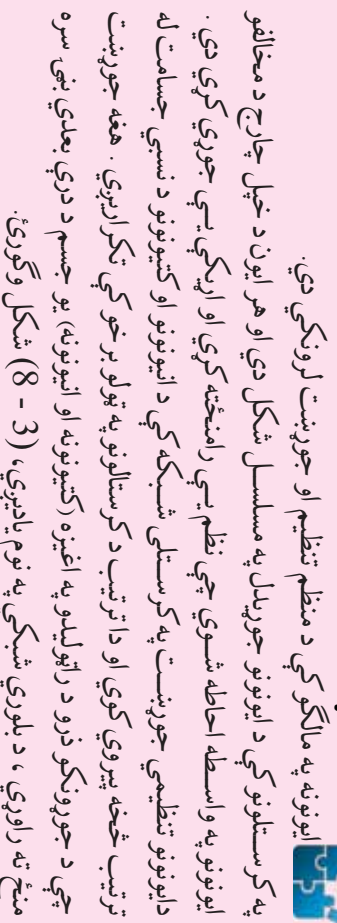 ایونونه په مالګو کې د منظم تنظیم او جوړښت لرونکي دي.
په کرستلونو کې د ایونونو جوړیدل په مسلسل شکل دي او هر ایون د خپل چارج د مخالفو
ایونونو په واسطه احاطه شوي چې نظم یې رامنځته کړی او اړیکې یې جوړې کړې دي .
دایونونو تنظیمي جوړښت په کرستلي شبکه کې د انیونونو او کتیونونو د نسبي جسامت له
ترتیب څخه پیروي کوي او دا ترتیب د کرستالونو په ټولو برخو کې تکراریږي . هغه جوړښت
چې د جوړونکو ذرو د راټولیدو په اغیزه (کتیونونه او انیونونه) یو جسم د درې بعدي بڼې سره
منځ ته راوړي ، د بلوري شبکې په نوم یادیږي، (3 - 8) شکل وګورئ.